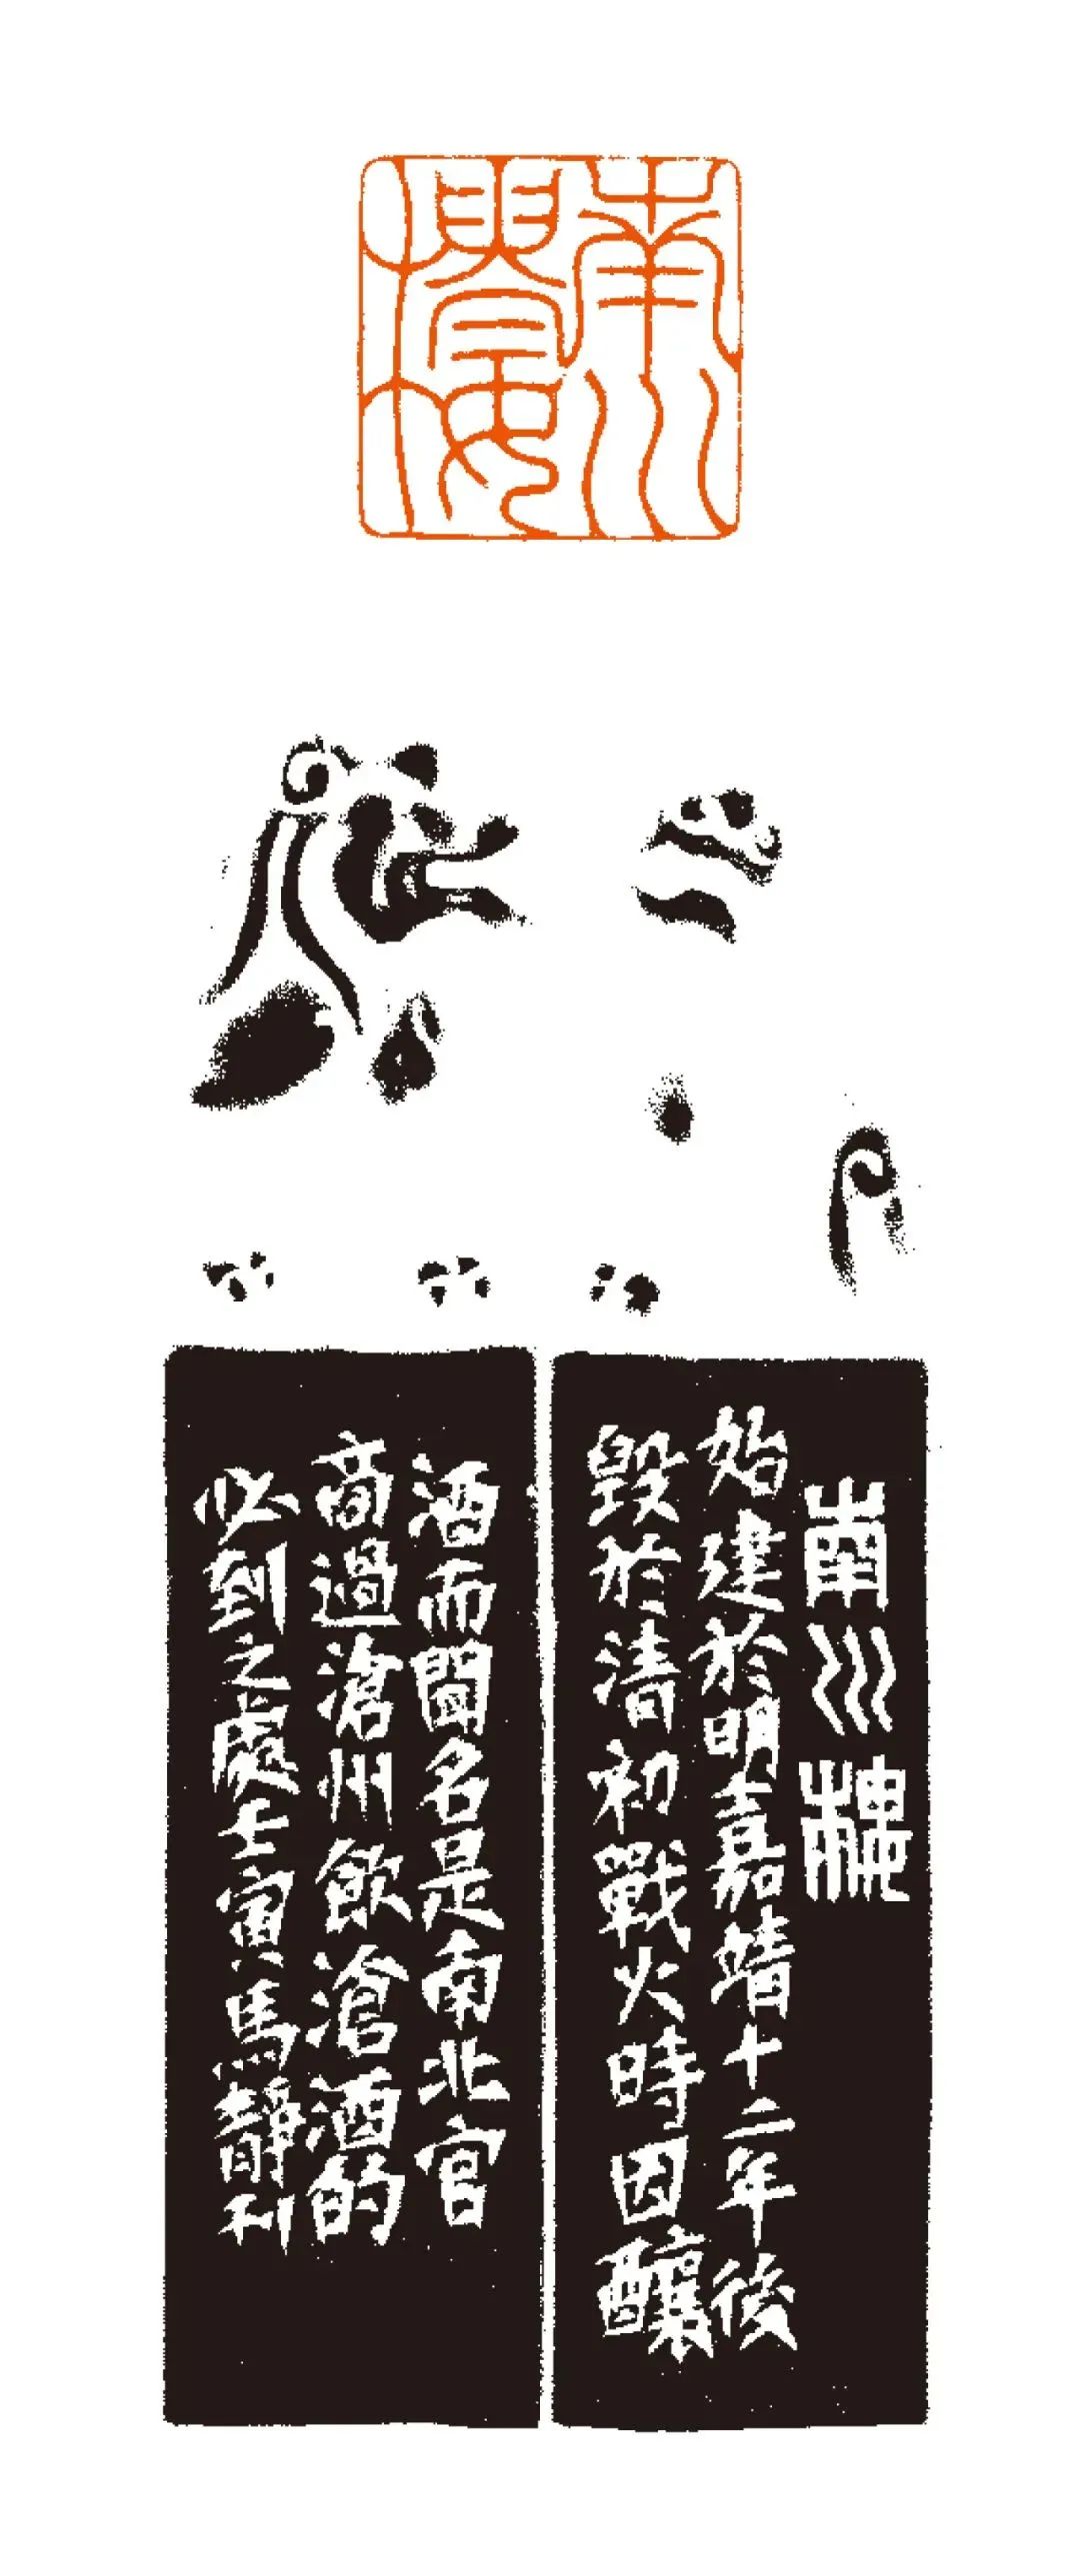 南川樓
南川樓
始建於明嘉靖十二年後
毀於清初戰火時因釀
酒而聞名是南北官
商過滄州飲滄酒的
必到之處壬寅馬靜利